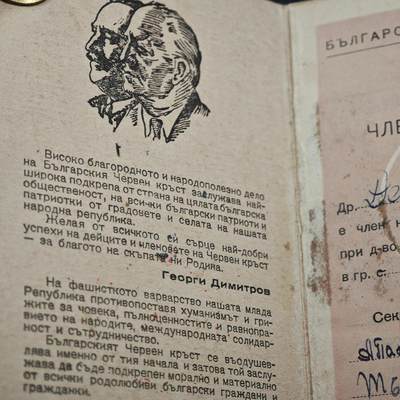 Високо благородното и народополезно дело
на Българския Червен кръст заслужава най-
широка подкрепа от страна на цялата българска
общественост, на всички български патриоти и
патриотки от градовете и селата на нашата
народна република.
Желая от всичкото си сърце най-добри
успехи на дейците и членовете на Червен кръст
— за благото на скъпата ни Родина.
Георги Димитров
На фашисткото варварство нашата млада
Република противопоставя хуманизмът и гри-
жите за човека, пълноценността и равноправ-
нието на народите, международната солидар-
ност и сътрудничество.
Българският Червен кръст се въодушев-
лява именно от тия начала и затова той заслу-
жава да бъде подкрепен морално и материално
от всички родолюбиви български граждани и
гражданки.
БЪЛГАРС
ЧЛЕ
Др.
е член н
при д-во
в гр. с.
Сек